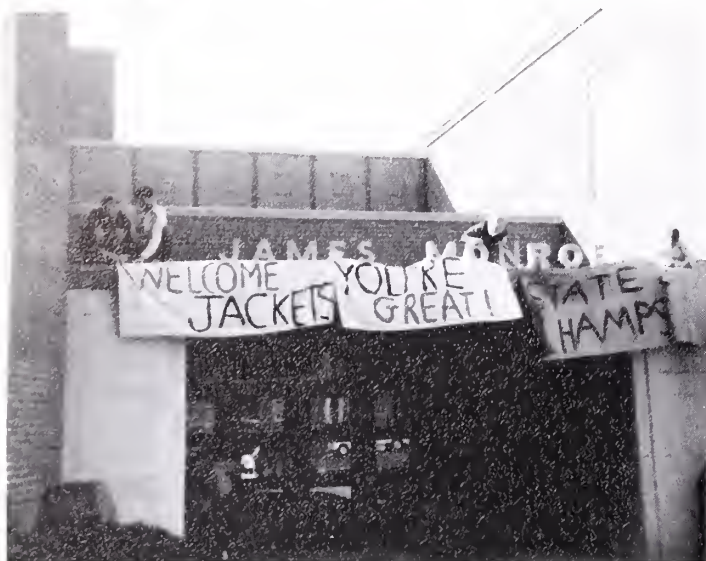 JAMES MONROE
WELCOME
JACKETS
YOU'RE
GREAT!
STATE
HAMPS